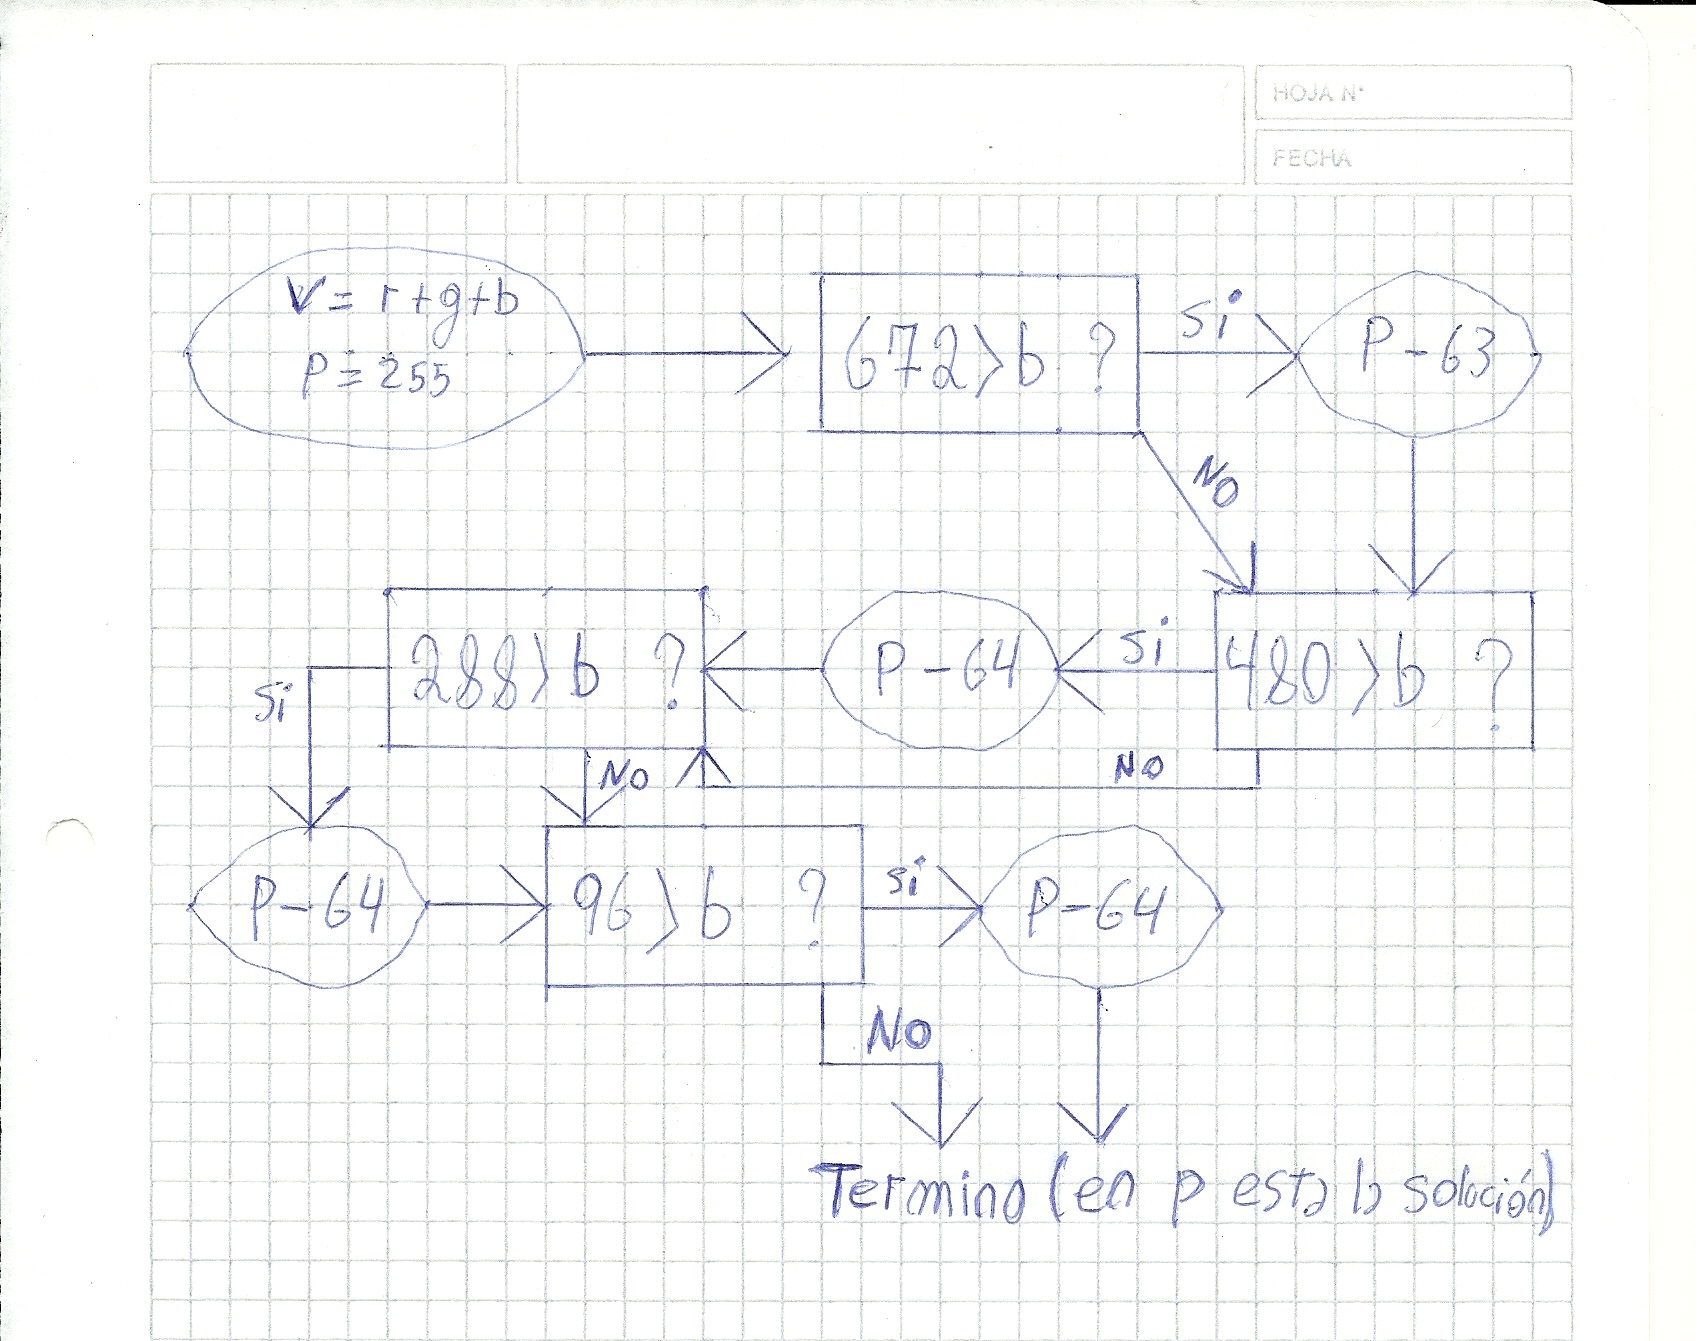 HOJA Nº
FECHA
V = r+g+b
P = 255
672>b ?
si
P-63
No
480>b ?
si
P-64
288>b ?
si
No
No
P-64
96>b ?
si
P-64
No
Termino (en p esta la solución)